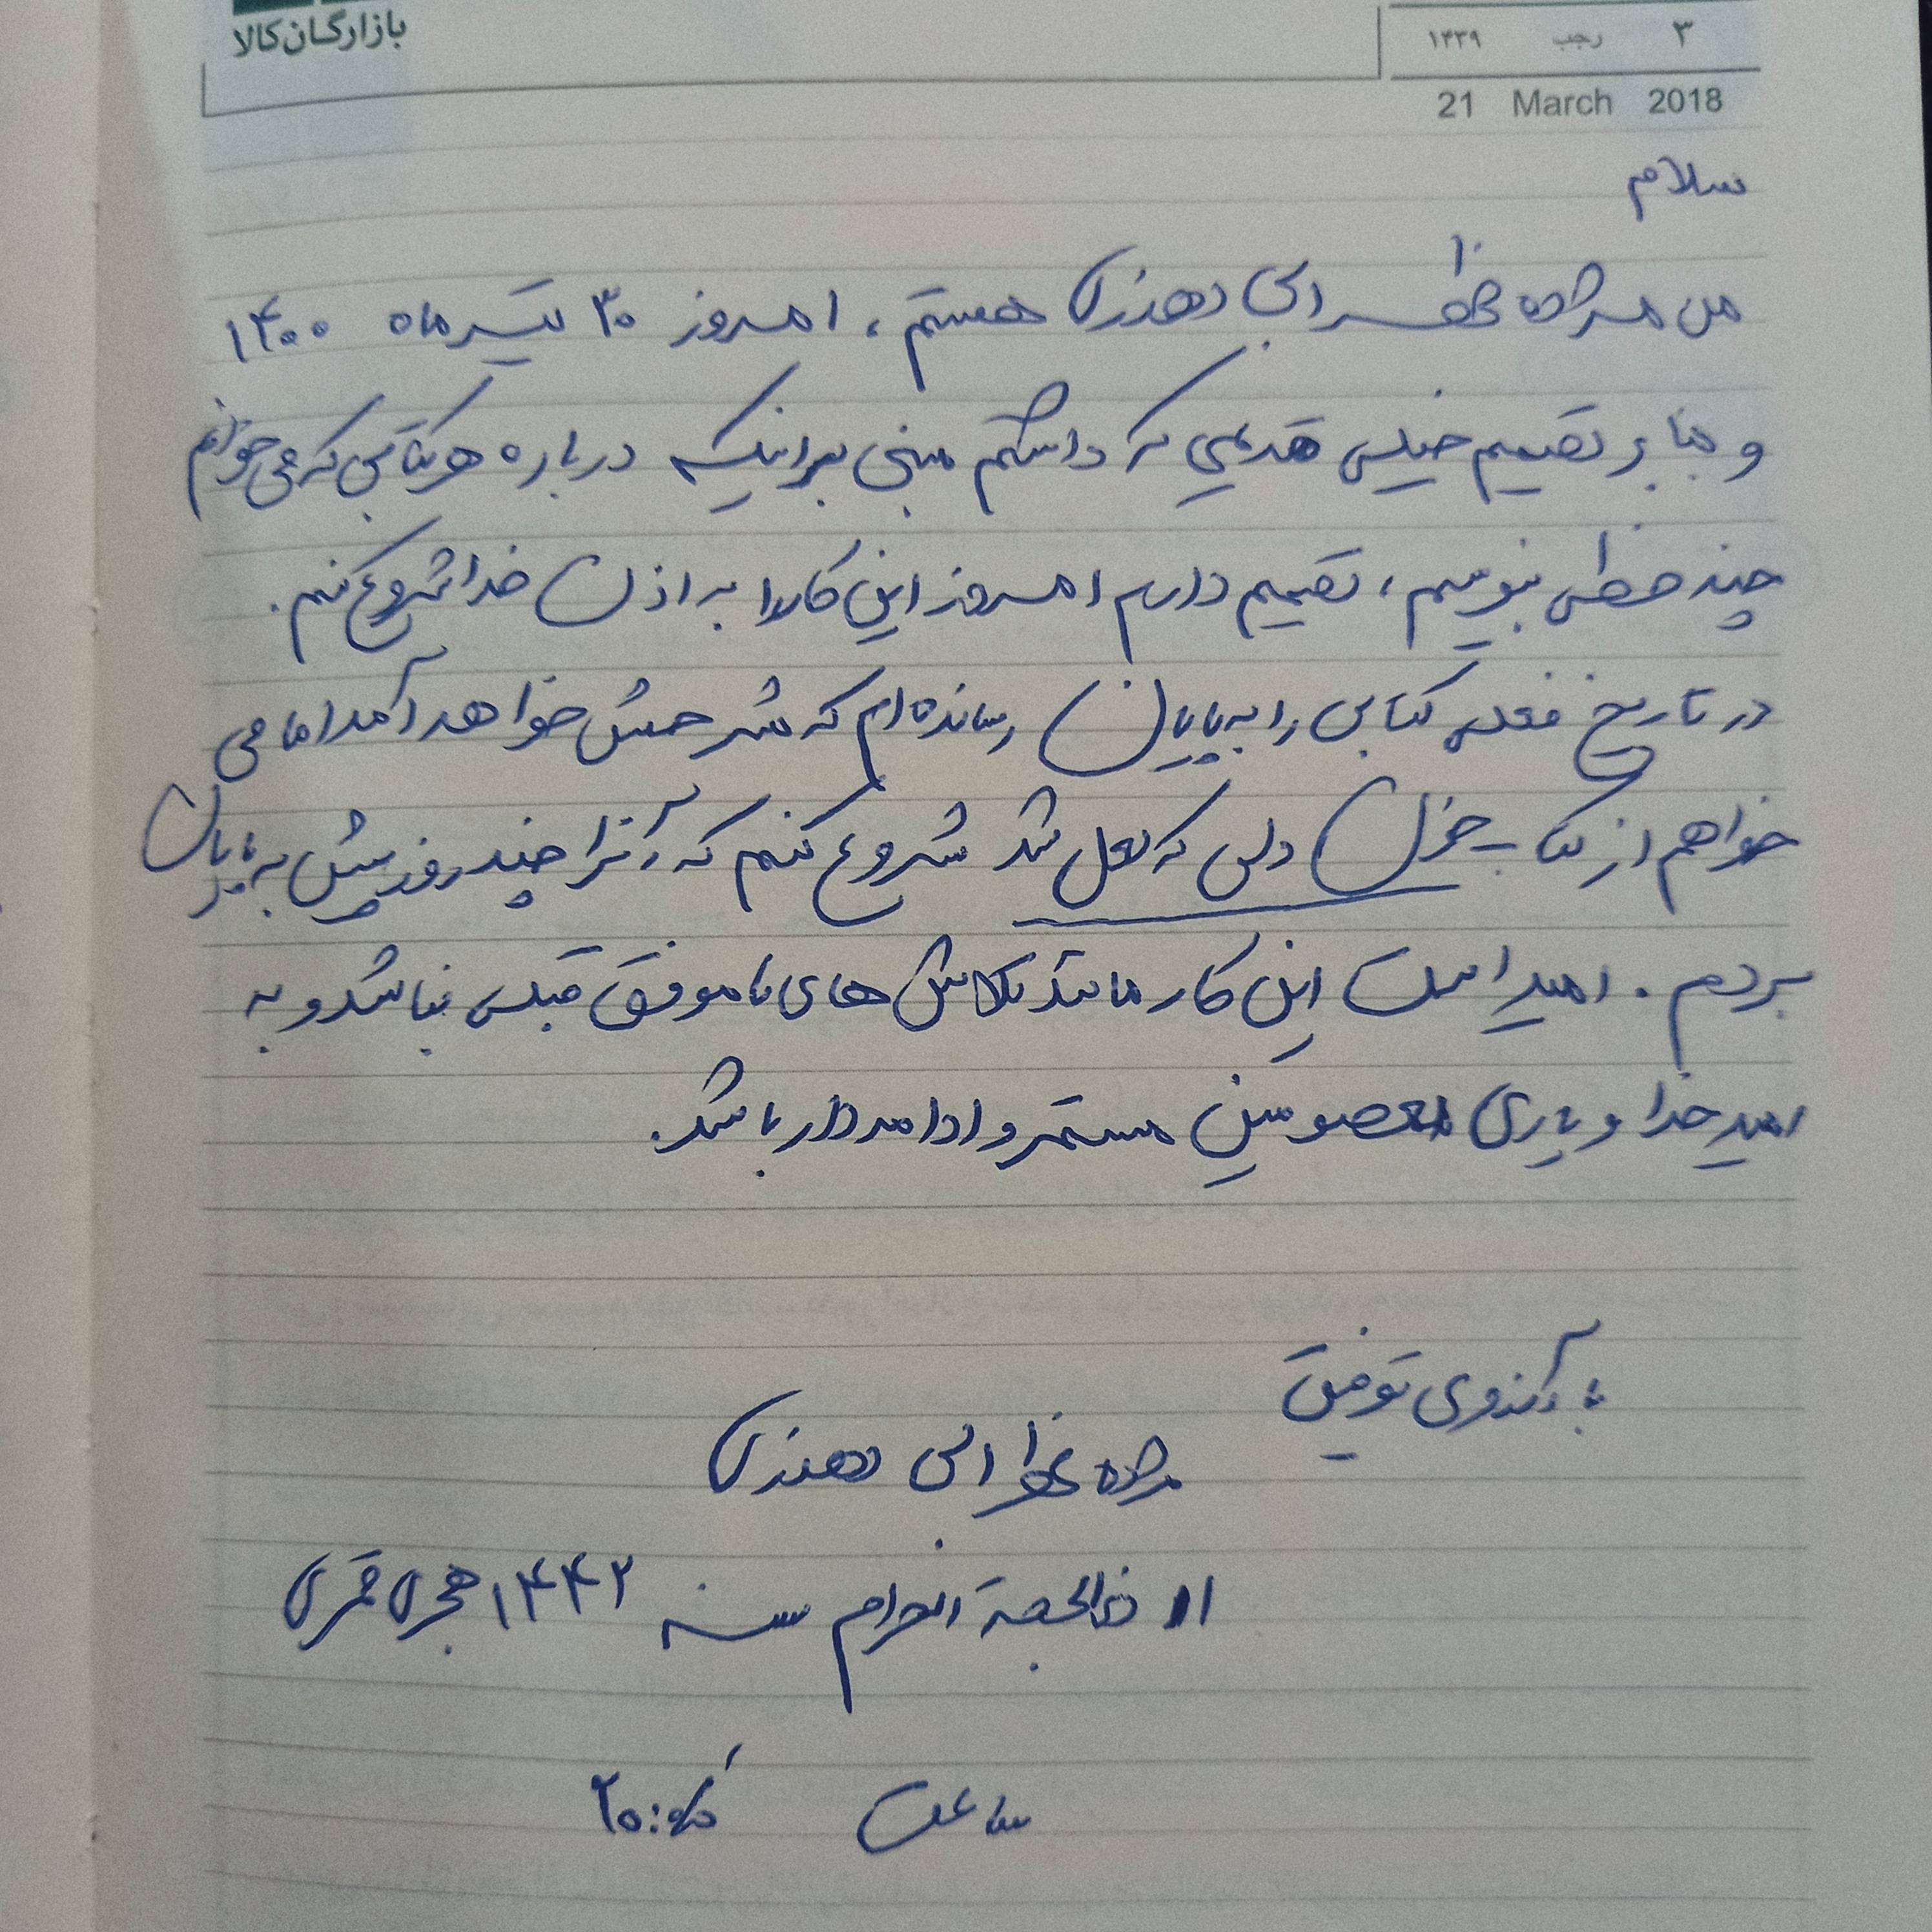 بازارگان کالا
۳ رجب ۱۴۳۹
21 March 2018
سلام
من مژده خضرایی دهنوی هستم، امروز ۳۰ تیر ماه ۱۴۰۰
و بنا بر تصمیم خیلی قدیمی که داشتم مبنی بر اینکه درباره هر کتابی که می خوانم
چند خطی بنویسم، تصمیم دارم امروز این کار را به اذن خدا شروع کنم.
در تاریخ فعلی کتابی را به پایان رسانده ام که شرحش خواهد آمد اما می
خواهم از کتاب خون دلی که لعل شد شروع کنم که آنرا چند روز پیش به پایان
بردم. امید است این کار مانند تلاش های ناموفق قبلی نباشد و به
امید خدا و یاری معصومین مستمر و ادامه دار باشد.
با آرزوی توفیق
دهنوی
۱۱ ذالحجة الحرام سنه ۱۴۴۲ هجری قمری
ساعت